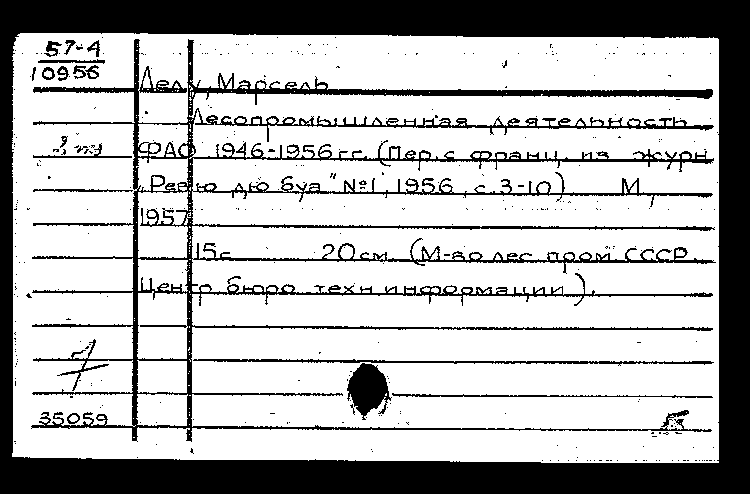 57-4
10956
Леду, Марсель
Лесопромышленная деятельность
ФАО 1946-1956 гг. (Пер. с франц. из журн
„Ревю дю буа" №1, 1956, с. 3-10) М.,
1957
15с 20 см. (М-во лес пром СССР.
Центр бюро техн. информации).
7
35059